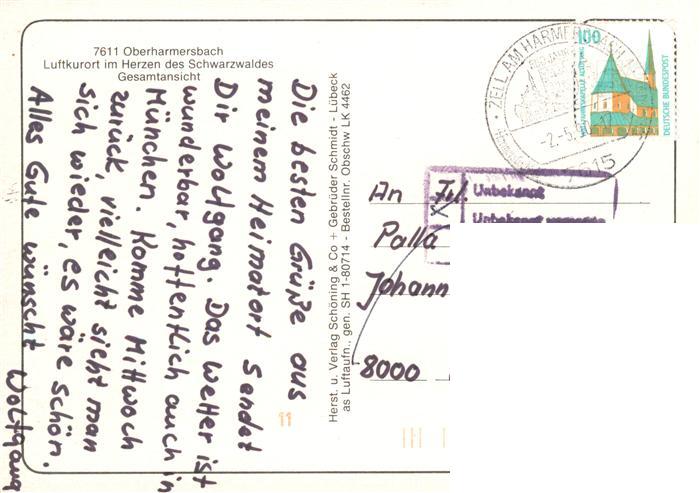 7611 Oberharmersbach
Luftkurort im Herzen des Schwarzwaldes
Gesamtansicht
Die besten Grüße aus
meinem Heimatort sendet
Dir Wolfgang. Das Wetter ist
wunderbar, hoffentlich auch in
München. Komme Mittwoch
zurück, vielleicht sieht man
sich wieder, es wäre schön.
Alles Gute wünscht Wolfgang
Herst. u. Verlag Schöning & Co + Gebrüder Schmidt - Lübeck
as Luftaufn., gen. SH 1-80714 - Bestellnr. Obschw LK 4462
11
ZELL AM HARMERSBACH
-2.-5.
7615
100
DEUTSCHE BUNDESPOST
Unbekannt
Unbekannt
An Frl.
Palla
Johann
8000